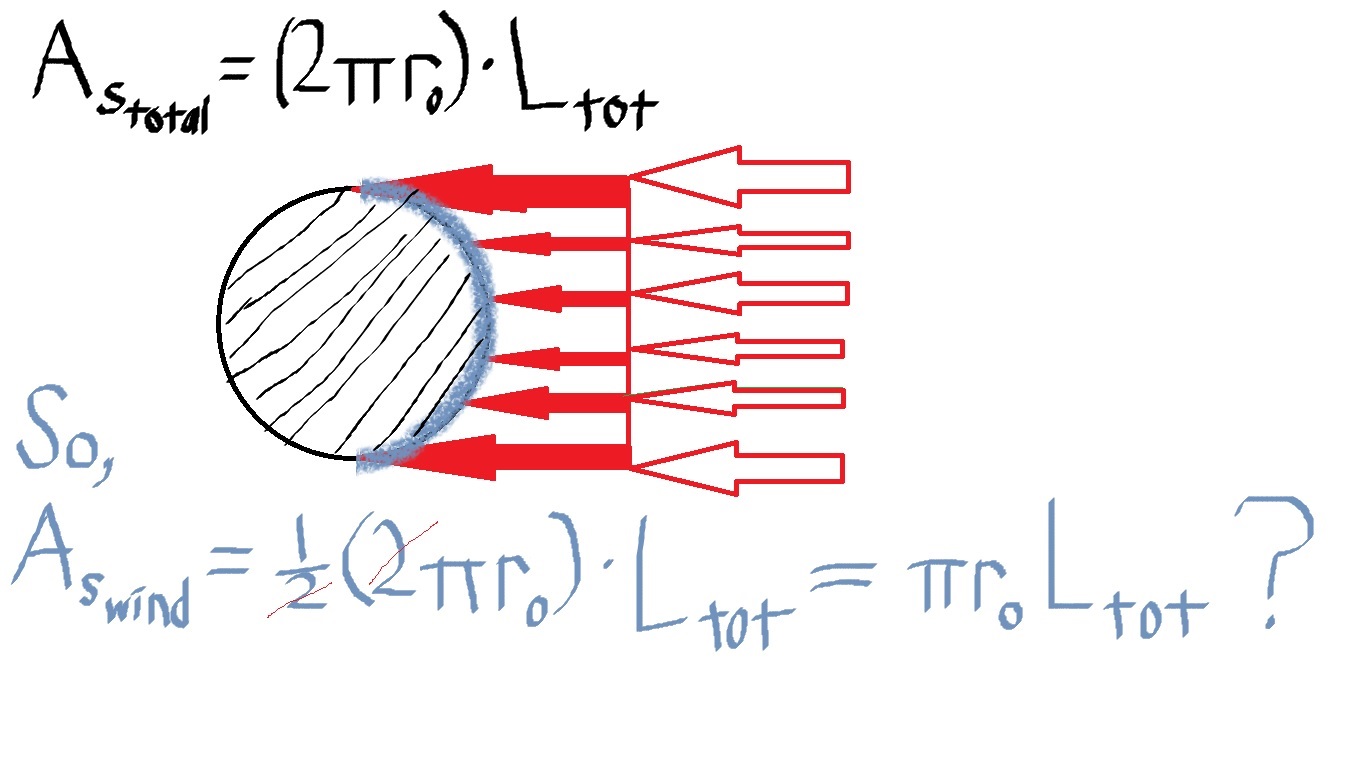 A_s_total = (2πr₀)·L_tot
So,
A_s_wind = 1/2(2πr₀)·L_tot = πr₀L_tot?